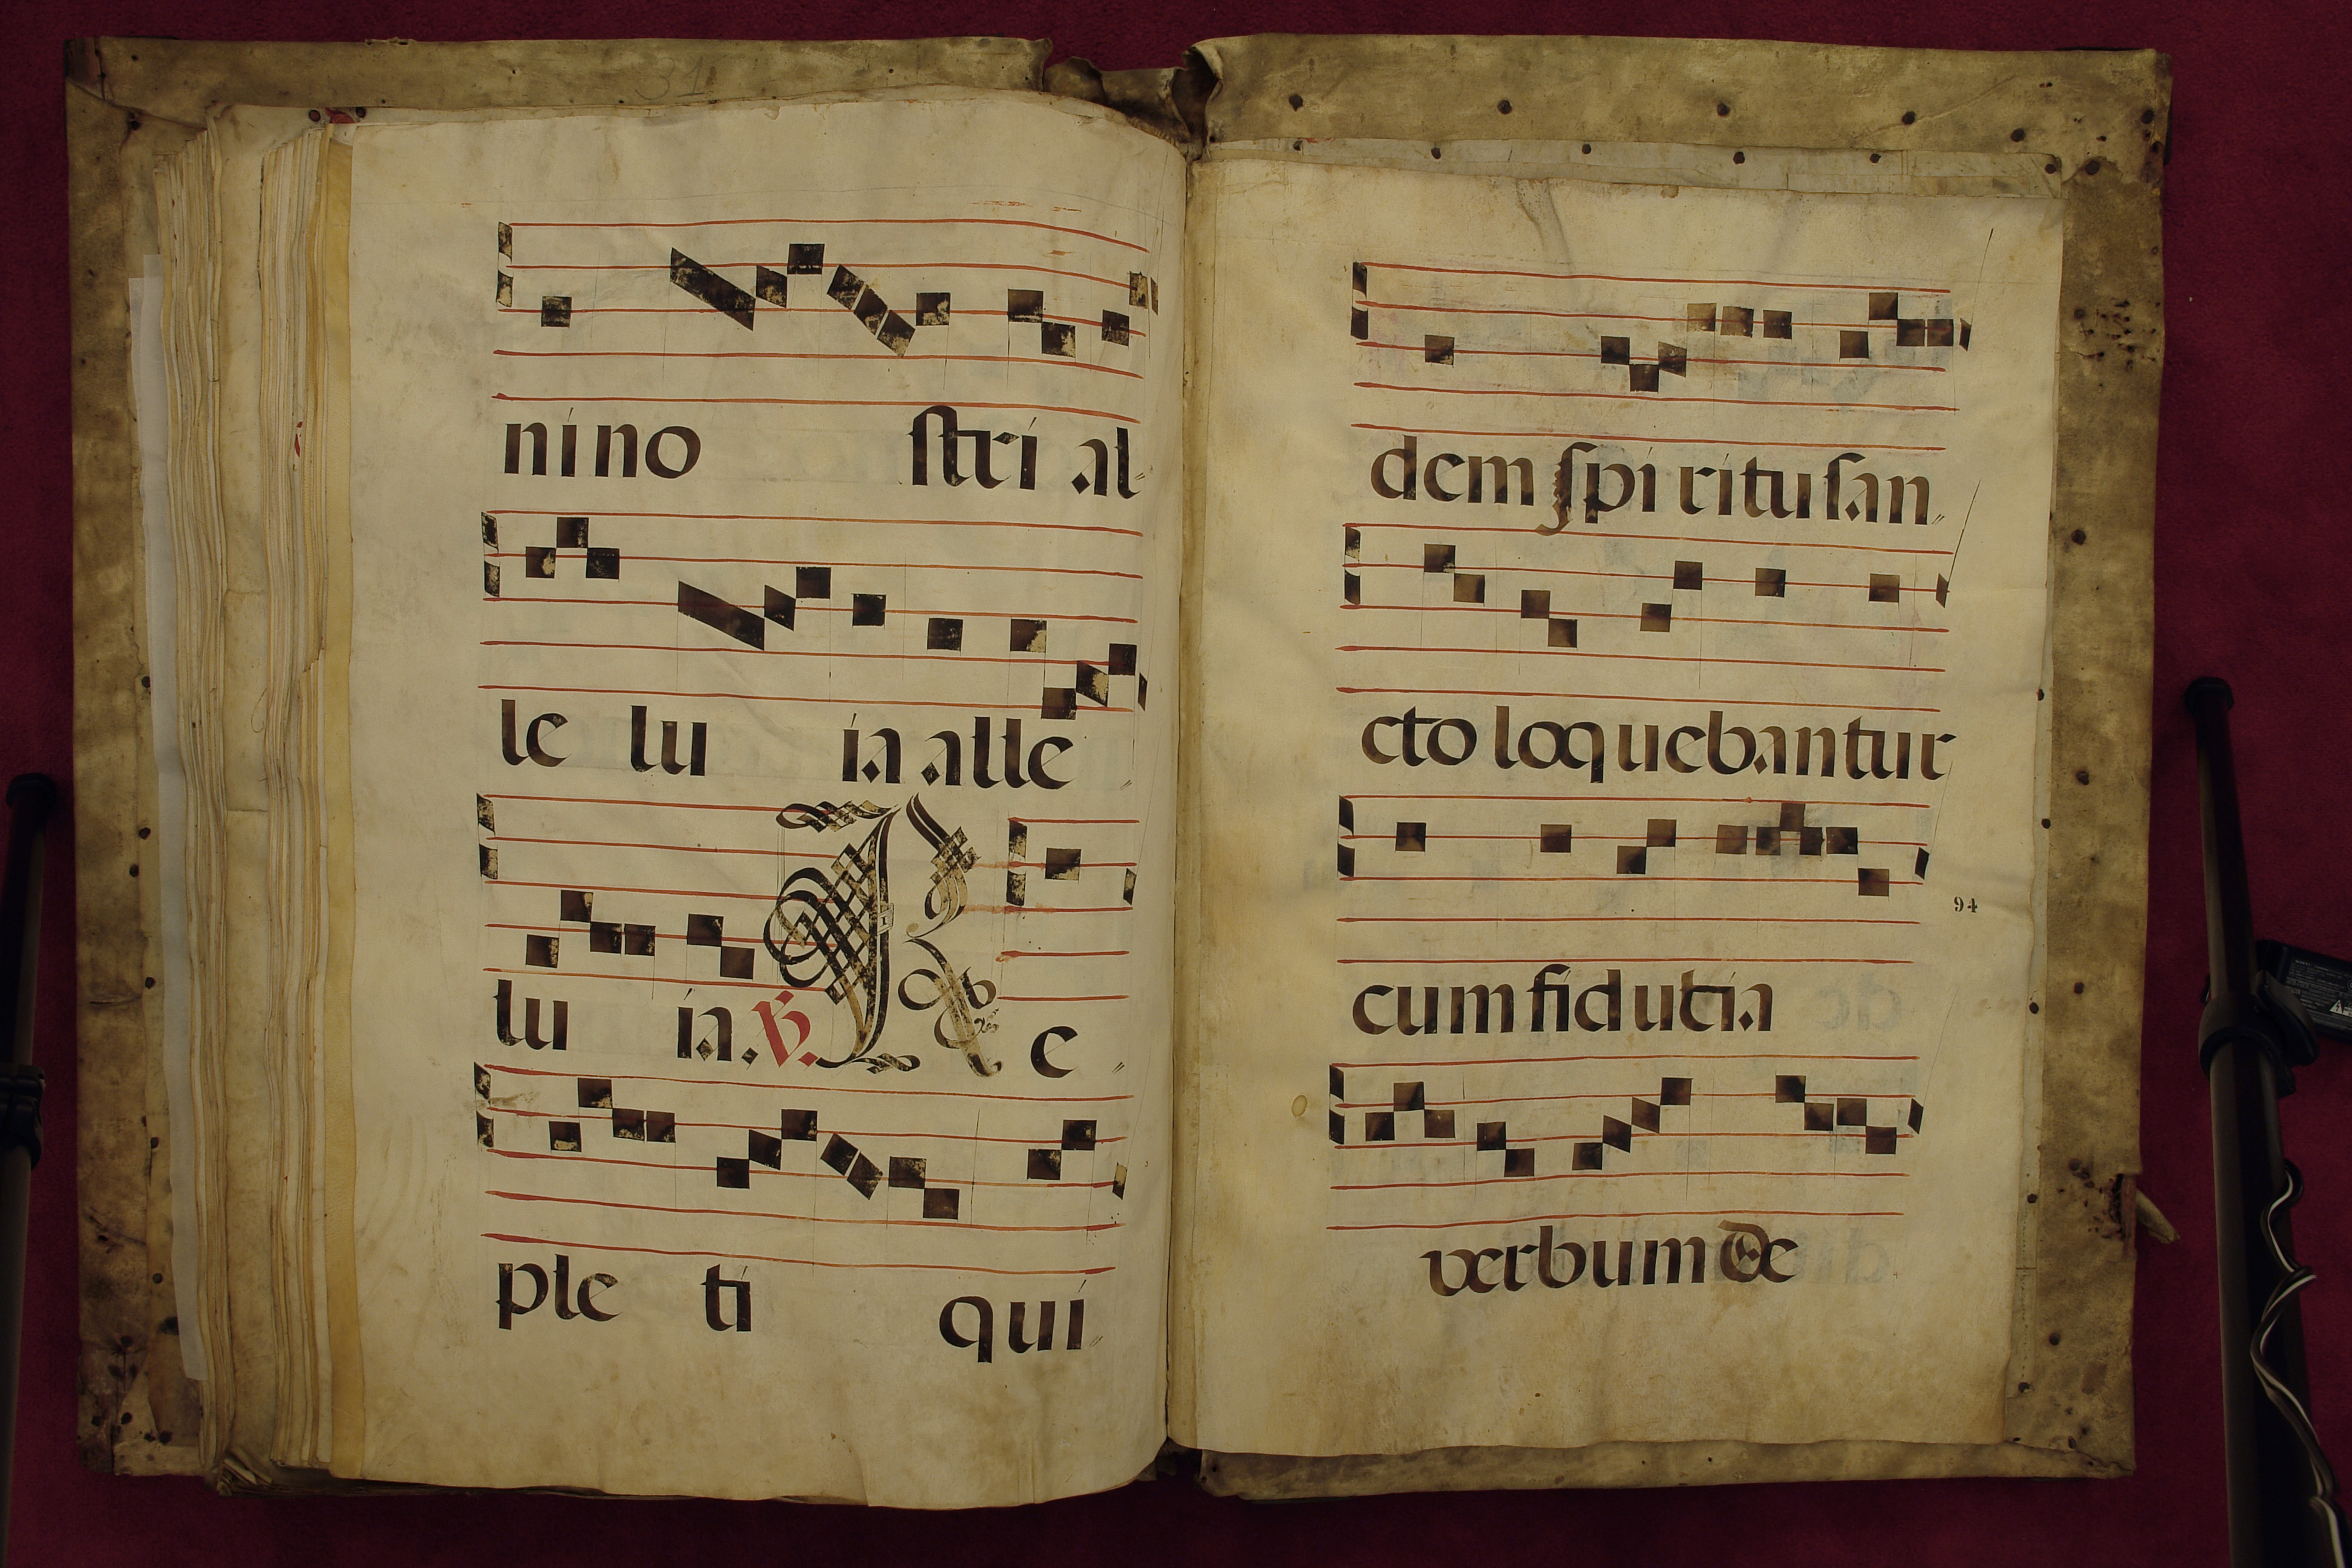 31
ni no stri al
le lu ia alle
lu ia. ℟. R e
ple ti qui
dem spi ritu san
cto loquebantur
94
cum fiducia
verbum de